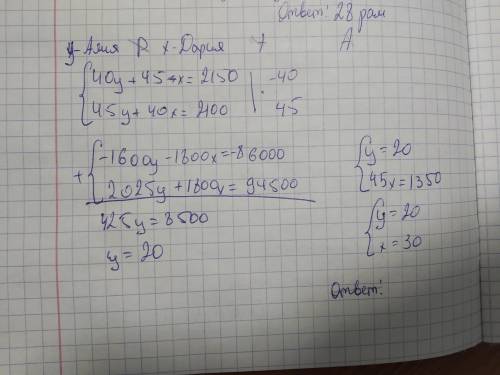 Ответ: 28 рам
y-Алия R x-Дария A
40y + 45x = 2150 | · -40
45y + 40x = 2100 | 45
+ -1600y - 1800x = -86000
2025y + 1800x = 94500
425y = 8500
y = 20
y = 20
45x = 1350
y = 20
x = 30
Ответ: